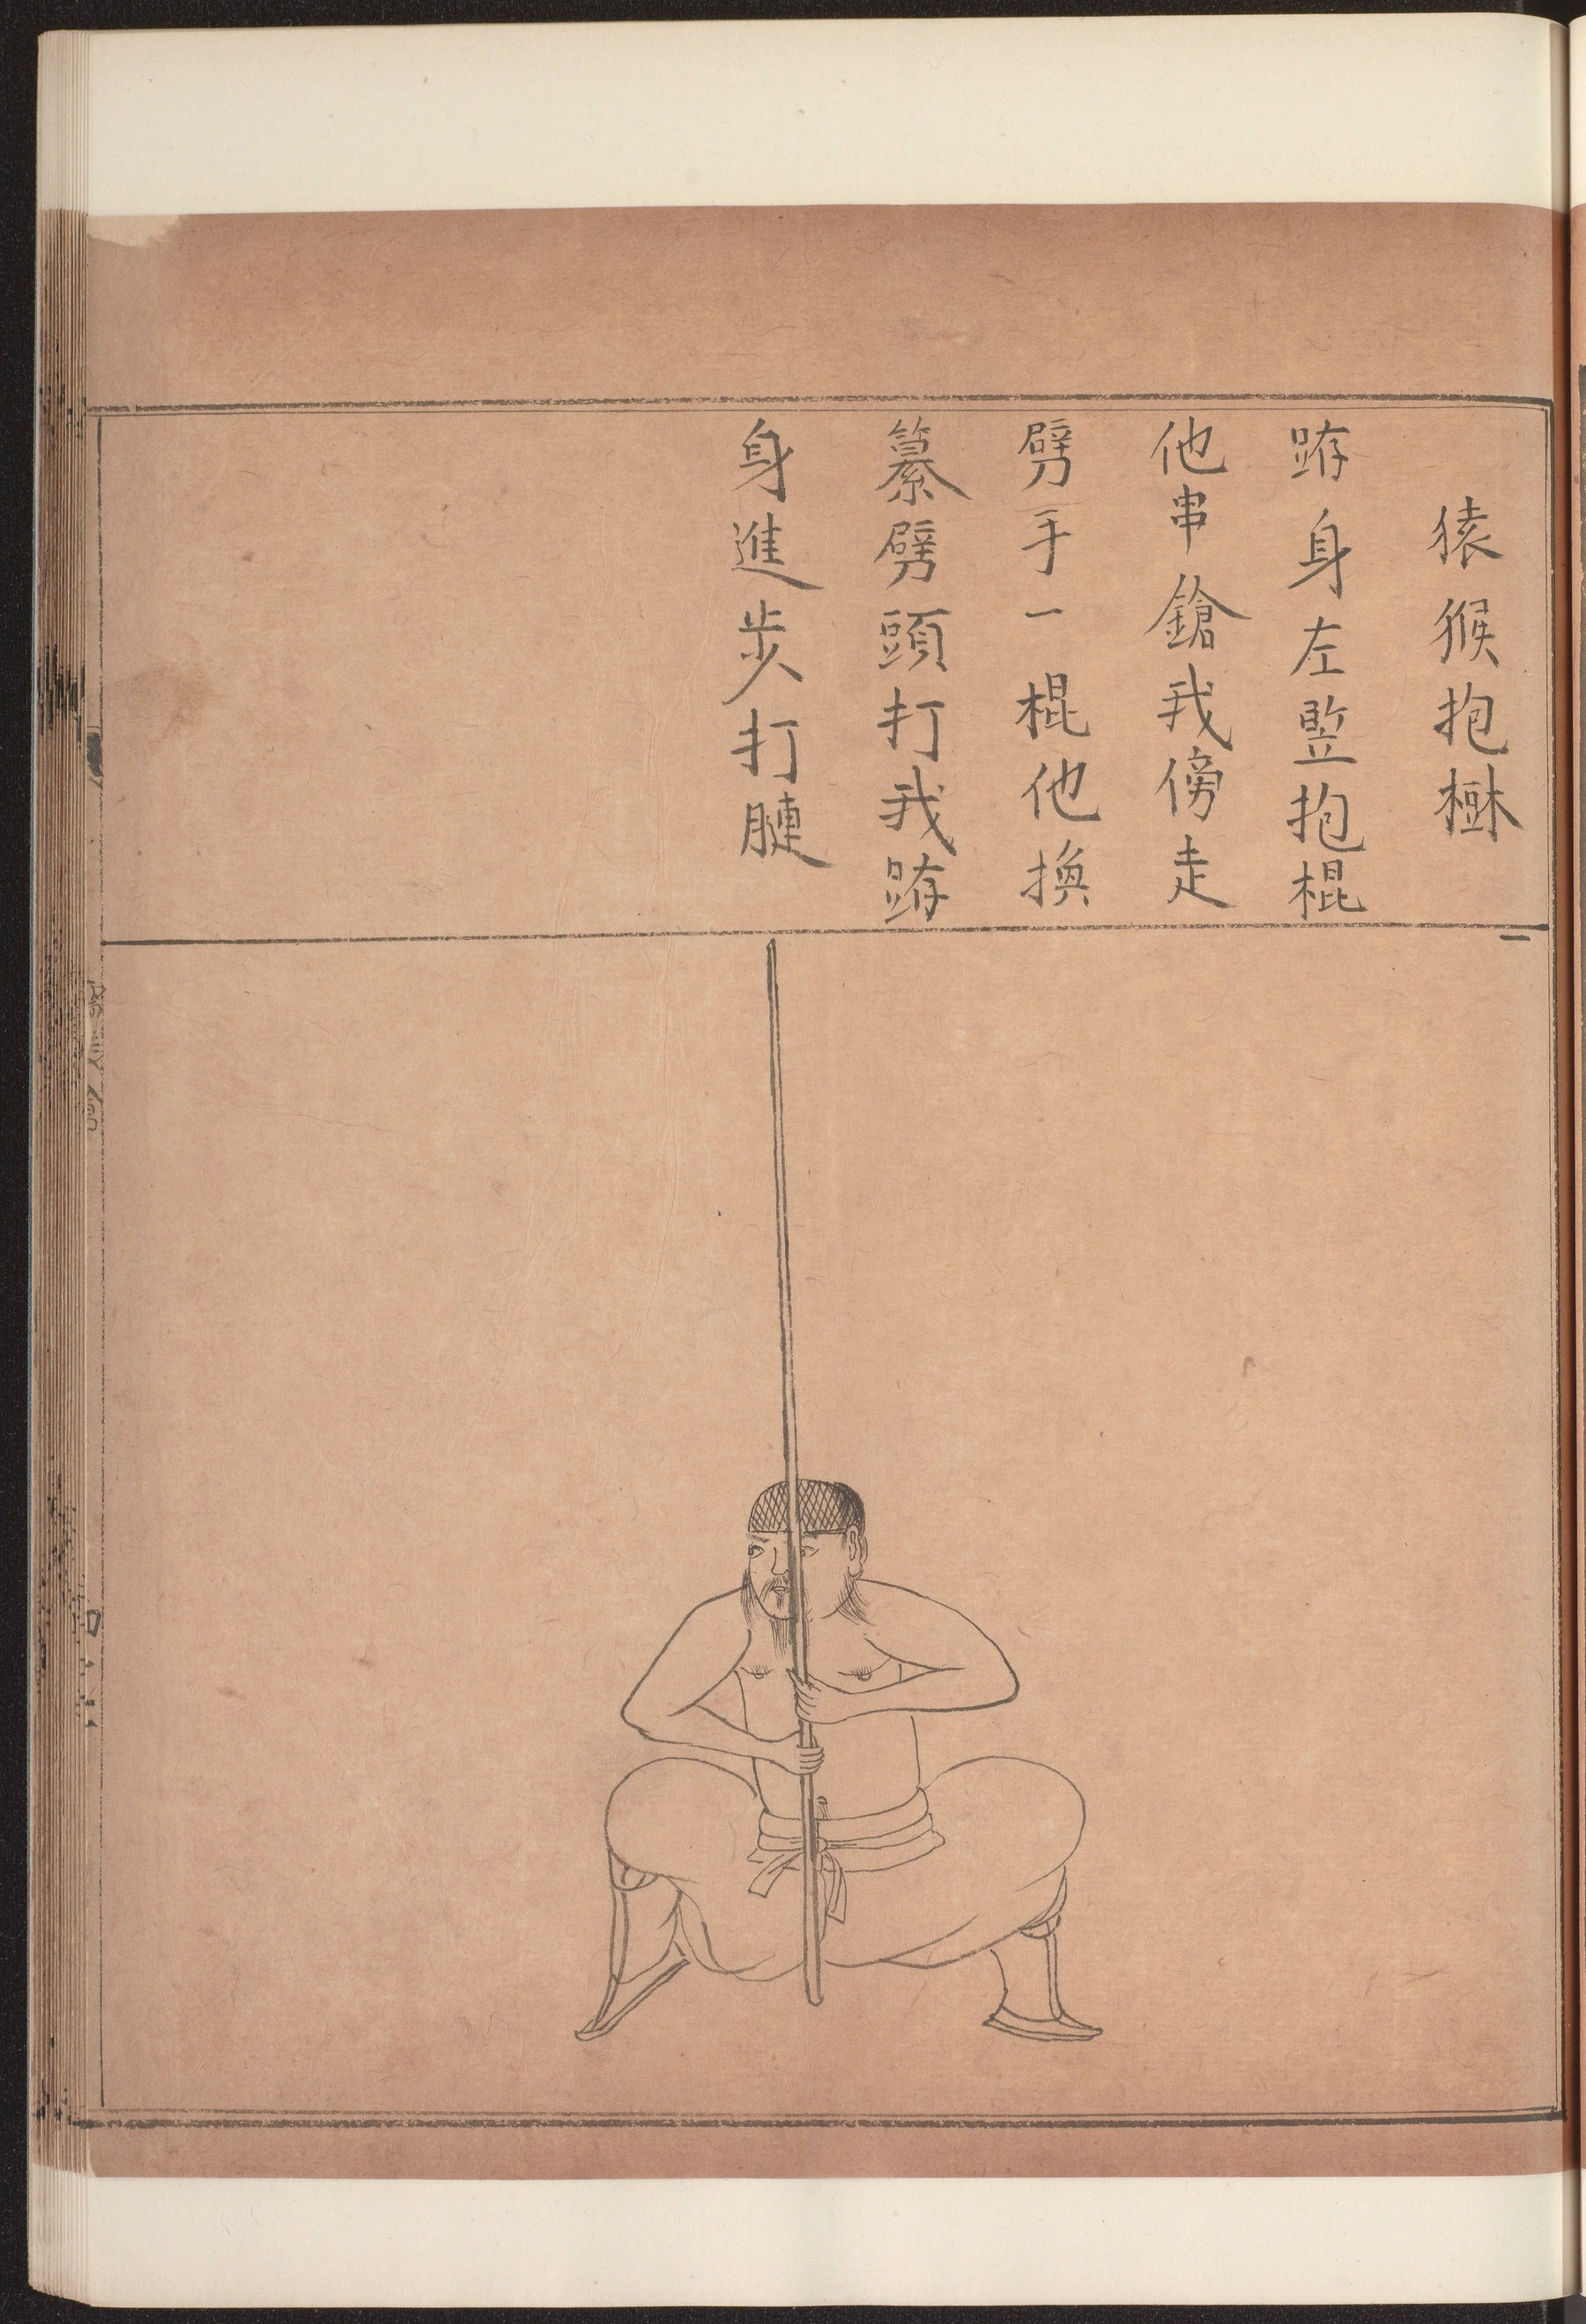 猿猴抱樹
身左竪抱棍
他串鎗我傍走
劈手一棍他換
纂劈頭打我
身進步打腱